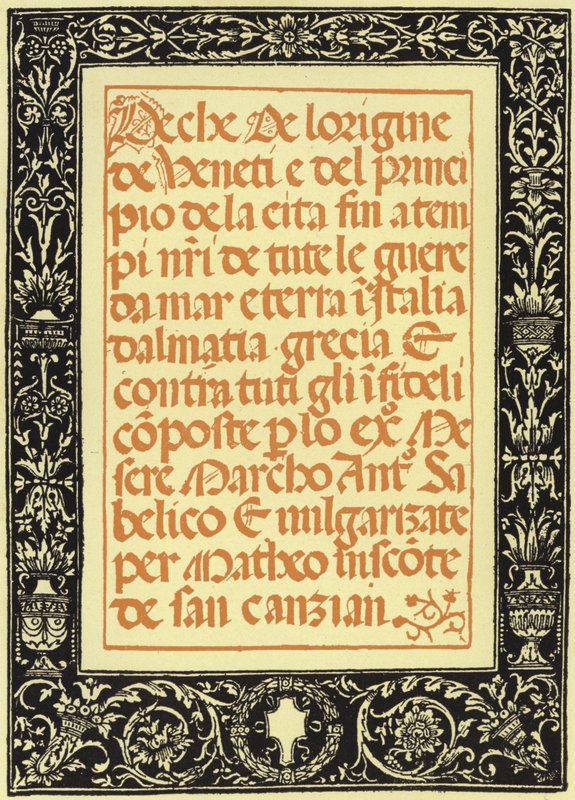 Deche De lorigine
de Veneti e del princi
pio de la cita fin a tem
pi nr̃i de tute le guere
da mar e terra ĩ Italia
dalmatia grecia E
contra tuti gli ĩfideli
cõposte ꝑ lo exº Me
sere Marcho Antº Sa
belico E vulgarizate
per Matheo viscõte
de san canzian